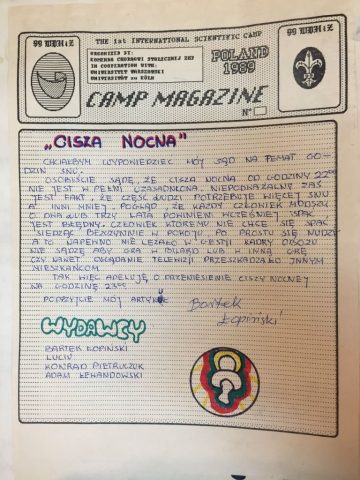 ZHIHDU 66
THE 1st INTERNATIONAL SCIENTIFIC CAMP
ORGANIZED BY:
KOMENDA CHORĄGWI STOŁECZNEJ ZHP
IN COOPERATION WITH:
UNIWERSYTET WARSZAWSKI
UNIVERSITY zu KÖLN
POLAND
1989
CAMP MAGAZINE
N°
„CISZA NOCNA"
CHCIAŁBYM WYPOWIEDZIEĆ MÓJ SĄD NA TEMAT GO-
DZIN SNU.
OSOBIŚCIE SĄDZĘ, ŻE CISZA NOCNA OD GODZINY 22⁰⁰
NIE JEST W PEŁNI UZASADNIONA. NIEPODWAŻALNY ZAŚ
JEST FAKT, ŻE CZĘŚĆ LUDZI POTRZEBUJE WIĘCEJ SNU
A INNI MNIEJ. POGLĄD ŻE KAŻDY CZŁOWIEK MŁODSZY
O DWA LUB TRZY LATA POWINIEN WCZEŚNIEJ SPAĆ
JEST BŁĘDNY. CZŁOWIEK KTÓREMU NIE CHCE SIĘ SPAĆ
SIEDZĄC BEZCZYNNIE W POKOJU PO PROSTU SIĘ NUDZI
A TO NAPEWNO NIE LEŻAŁO W GESTII KADRY OBOZU
NIE SĄDZĘ ABY GRA W BILARD LUB W INNĄ GRĘ
CZY NAWET OGLĄDANIE TELEWIZJI PRZESZKADZAŁO INNYM
MIESZKAŃCOM.
TAK WIĘC APELUJĘ O PRZENIESIENIE CISZY NOCNEJ
NA GODZINĘ 23⁰⁰
PODPISUJĘ MÓJ ARTYKUŁ
Bartek
Łopiński
WYDAWCY
BARTEK ŁOPIŃSKI
LUCIU
KONRAD PIETRUCZUK
ADAM LEWANDOWSKI